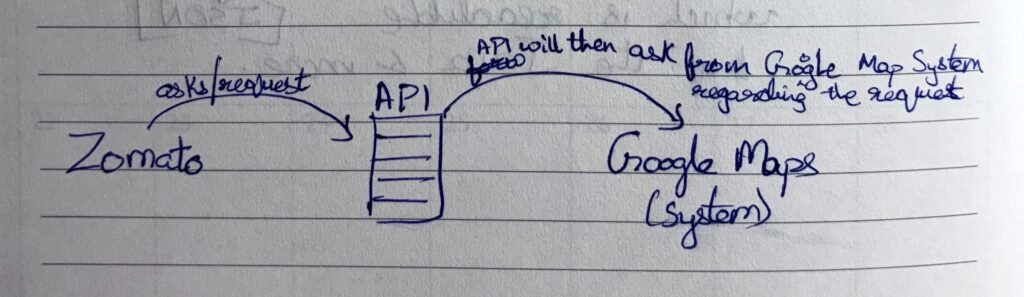 API will then ask from Google Map System
asks/request
API
regarding the request
Zomato
Google Maps
(System)